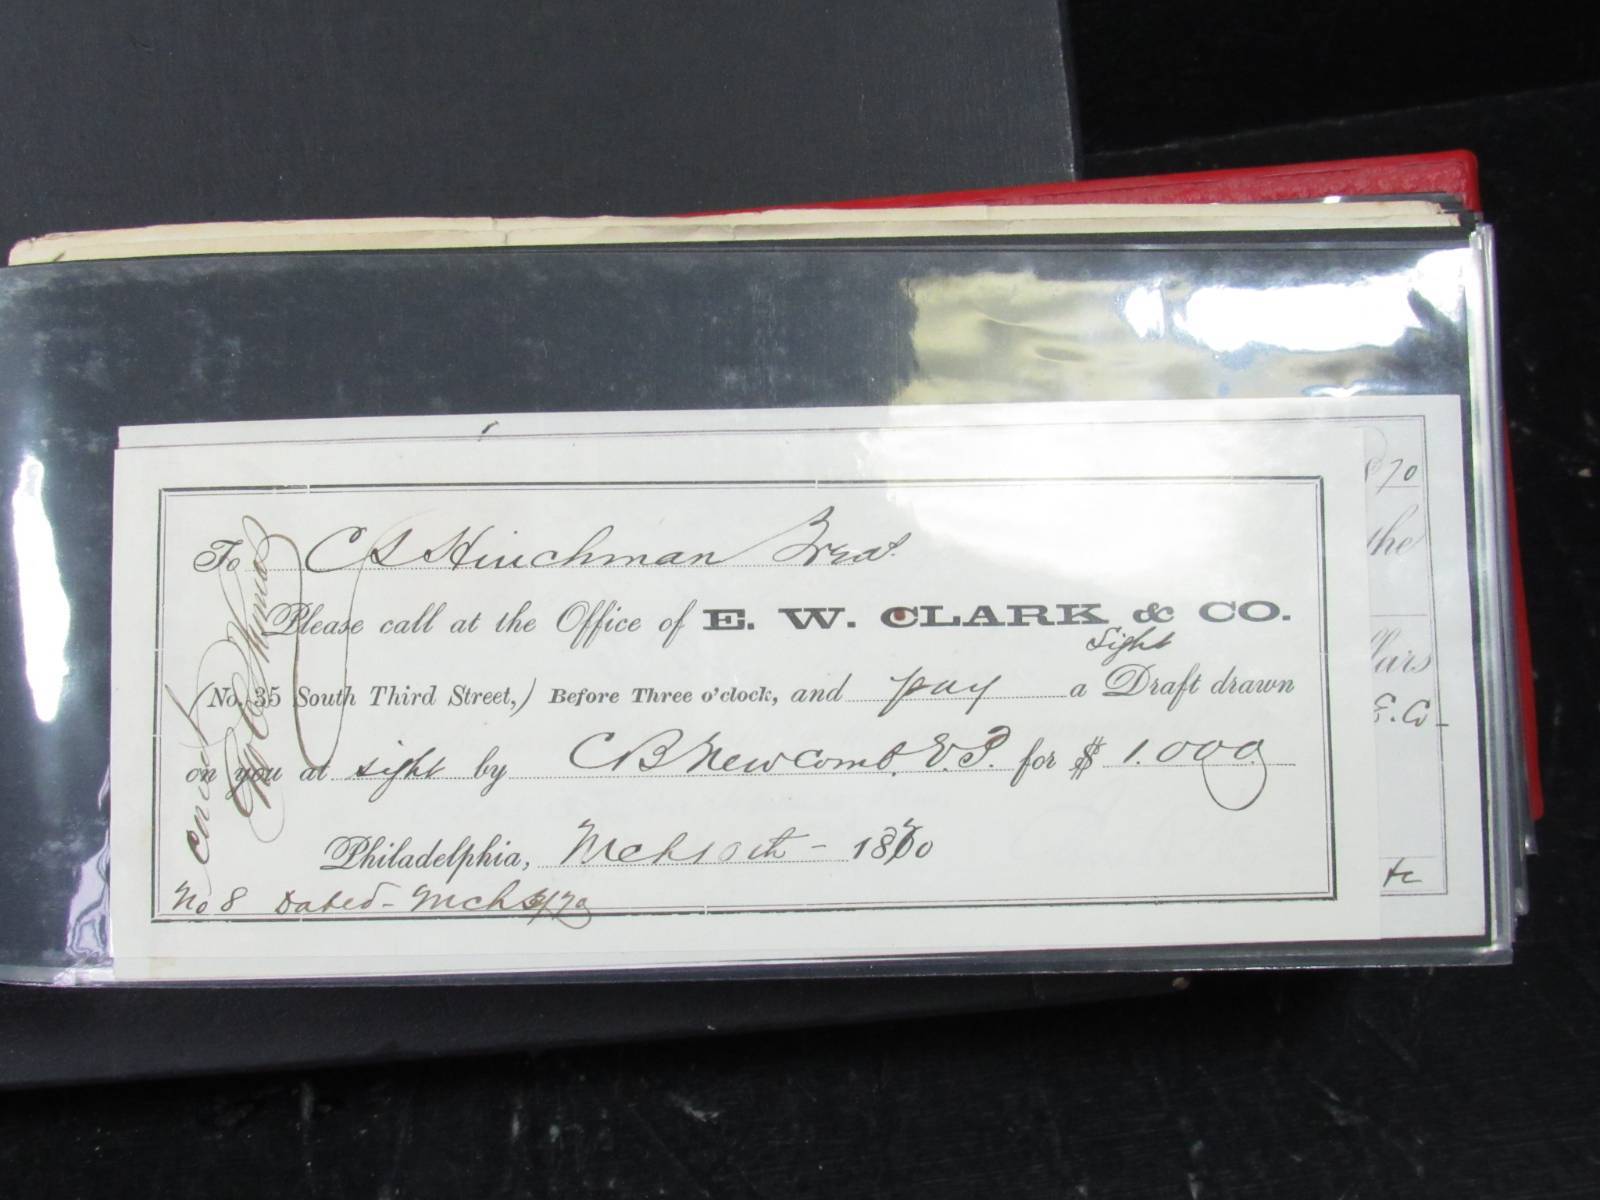 To C S Hinchman Treat.
Please call at the Office of E. W. CLARK & CO.
Sight
(No. 35 South Third Street,) Before Three o'clock, and pay a Draft drawn
on you at sight by C B Newcomb. V. P. for $ 1.000
Philadelphia, Mch 10th - 1870
No 8 Dated - Mch /70
70
the
llars
E. Co